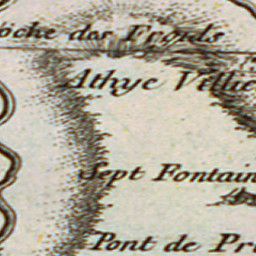 oche des Fronds
Athye Ville
Sept Fontain
Pont de Pr